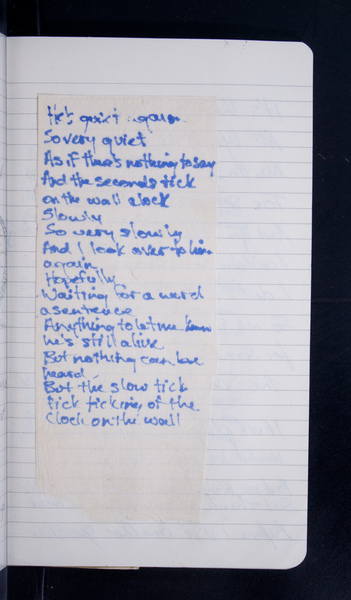 He's quiet again
So very quiet
As if there's nothing to say
And the seconds tick
on the wall clock
Slowly
So very slowly
And I look over to him
again
Hopefully
Waiting for a word
a sentence
Anything to let me know
he's still alive
But nothing can be
heard
But the slow tick
tick ticking of the
Clock on the wall